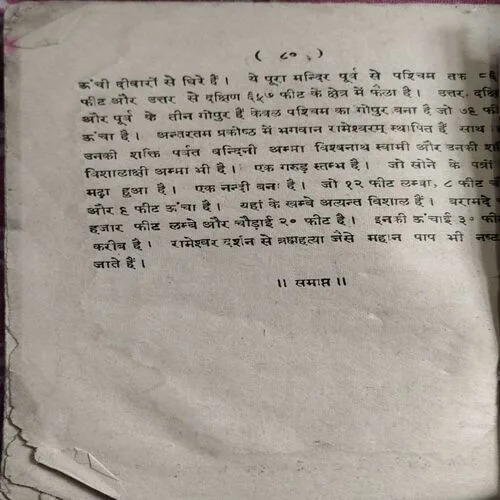 ( ८० )
ऊंची दीवारों से घिरे हैं। ये पूरा मन्दिर पूर्व से पश्चिम तक
फीट और उत्तर से दक्षिण ६५७ फीट के क्षेत्र में फैला है। उत्तर,
और पूर्व के तीन गोपुर हैं केवल पश्चिम का गोपुर बना है जो ७८ फीट
ऊंचा है। अन्तरतम प्रकोष्ठ में भगवान रामेश्वरम् स्थापित हैं साथ
उनकी शक्ति पर्वत बन्दिनी अम्मा विश्वनाथ स्वामी और उनकी
विशालाक्षी अम्मा भी है। एक गरुड़ स्तम्भ है। जो सोने के पत्रों
मढ़ा हुआ है। एक नन्दी बना है। जो १२ फीट लम्बा, ८ फीट
और ६ फीट ऊंचा है। यहां के खम्बे अत्यन्त विशाल हैं। बरामदे
हजार फीट लम्बे और चौड़ाई २० फीट है। इनकी ऊंचाई ३० फीट
करीब है। रामेश्वर दर्शन से ब्रह्महत्या जैसे महान पाप भी नष्ट
जाते हैं।
॥ समाप्त ॥